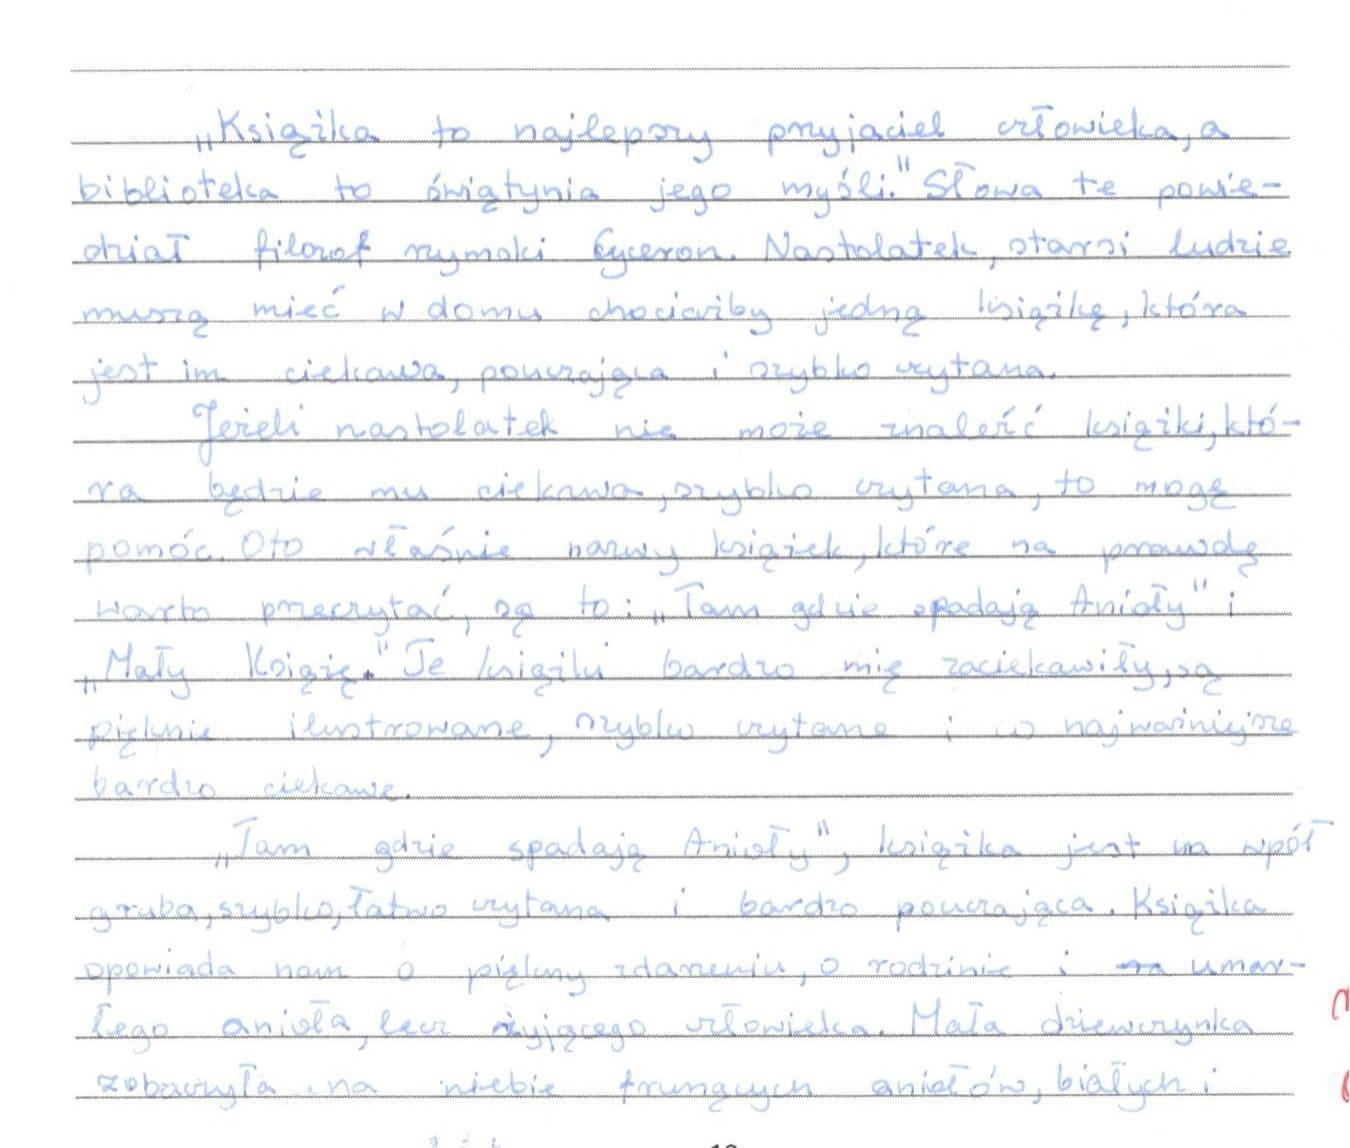 „Książka to najlepszy przyjaciel człowieka, a
biblioteka to świątynia jego myśli." Słowa te powie-
dział filozof rzymski Cyceron. Nastolatek, starsi ludzie
muszą mieć w domu chociażby jedną książkę, która
jest im ciekawa, pouczająca i szybko czytana.
Jeżeli nastolatek nie może znaleźć książki, któ-
ra będzie mu ciekawa, szybko czytana, to mogę
pomóc. Oto właśnie nazwy książek, które na prawdę
warto przeczytać, są to: „Tam gdzie spadają Anioły" i
„Mały Książę." Te książki bardzo mię zaciekawiły, są
pięknie ilustrowane, szybko czytane i co najważniejsze
bardzo ciekawe.
„Tam gdzie spadają Anioły", książka jest na wpół
gruba, szybko, łatwo czytana i bardzo pouczająca. Książka
opowiada nam o piękny zdarzeniu, o rodzinie i umar-
łego anioła, lecz żyjącego człowieka. Mała dziewczynka
zobaczyła na niebie frunących aniołów, białych i